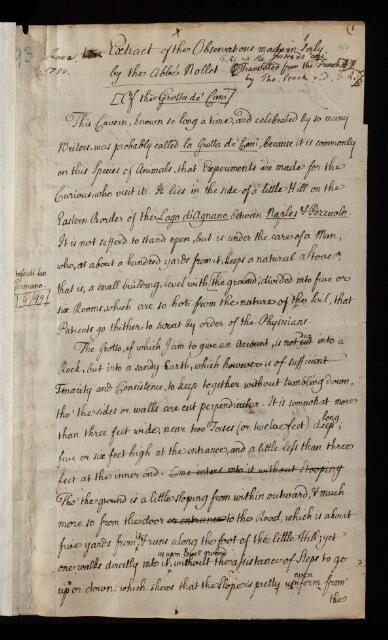 Extract of the Observations made in Italy
by the Abbé Nollet. Translated from the French
by Tho. Stack M.D. F.R.S.
1750.
[Of the Grotta de' Cani]
This Cavern, known so long a time, and celebrated by so many
Writers, was probably called la Grotta de' Cani, because it is commonly
on this Species of Animals, that Experiments are made for the
Curious who visit it. It lies in the side of a little Hill on the
Eastern Border of the Lago di Agnano between Naples & Pozzuolo.
It is not suffered to stand open, but is under the care of a Man,
who, at about a hundred yards from it, keeps a natural Stove,
that is, a small building, level with the ground, divided into five or
six Rooms, which are so hot from the nature of the Soil, that
Patients go thither to sweat by order of the Physicians.
Germano
1749
The Grotto, of which I am to give an Account, is not dug into a
Rock, but into a sandy Earth, which however is of sufficient
Tenacity and Consistence, to keep together without tumbling down,
tho' the sides or walls are cut perpendicular. It is somewhat more
than three feet wide, near two Toises (or twelve feet) long,
five or six feet high at the entrance, and a little less than three
feet at the inner end. One enters into it without stooping
Tho' the ground is a little sloping from within outward, & much
more so from the door or entrance to the Road, which is about
five yards from it, & runs along the foot of the little Hill; yet
one walks directly into it, as upon level ground, without the assistance of Steps to go
up or down: which shews that the Slope is pretty even from
the